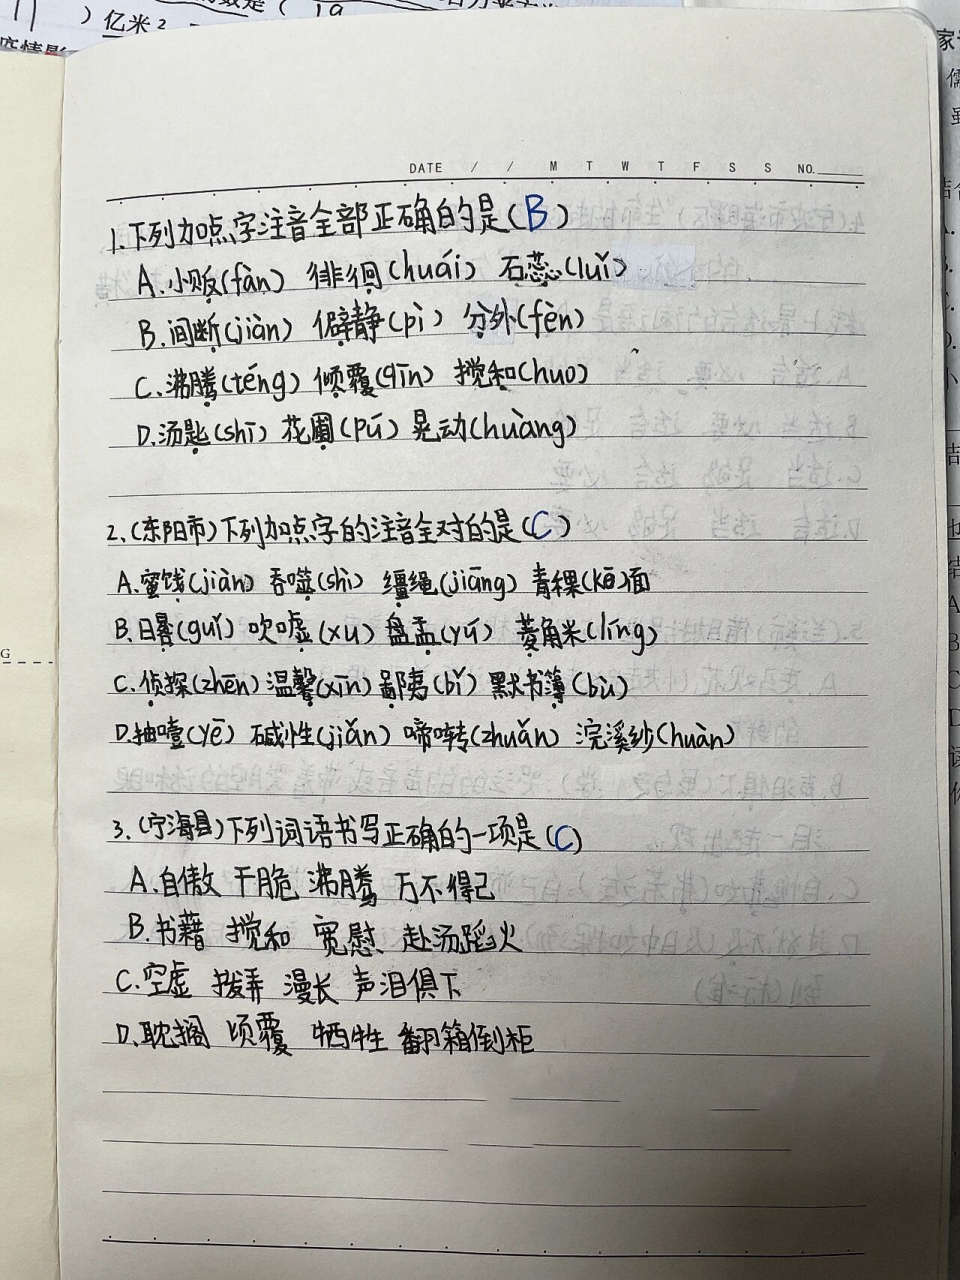 ）亿米²
DATE / / M T W T F S S NO.
1.下列加点字注音全部正确的是(B)
A.小贩(fàn) 徘徊(huái) 石蕊(luǐ)
B.间断(jiàn) 僻静(pì) 分外(fèn)
C.沸腾(téng) 倾覆(qīn) 搅和(huo)
D.汤匙(shī) 花圃(pú) 晃动(huàng)
2.(东阳市)下列加点字的注音全对的是(C)
A.蜜饯(jiàn) 吞噬(shì) 缰绳(jiāng) 青稞(kē)面
B.日晷(guǐ) 吹嘘(xu) 盘盂(yú) 菱角米(líng)
C.侦探(zhēn) 温馨(xīn) 鄙夷(bǐ) 默书簿(bù)
D.抽噎(yē) 碱性(jiǎn) 啼啭(zhuǎn) 浣溪纱(huàn)
3.(宁海县)下列词语书写正确的一项是(C)
A.自傲 干脆 沸腾 万不得己
B.书藉 搅和 宽慰 赴汤蹈火
C.空虚 拨弄 漫长 声泪俱下
D.耽搁 顷覆 牺牲 翻箱倒柜
G